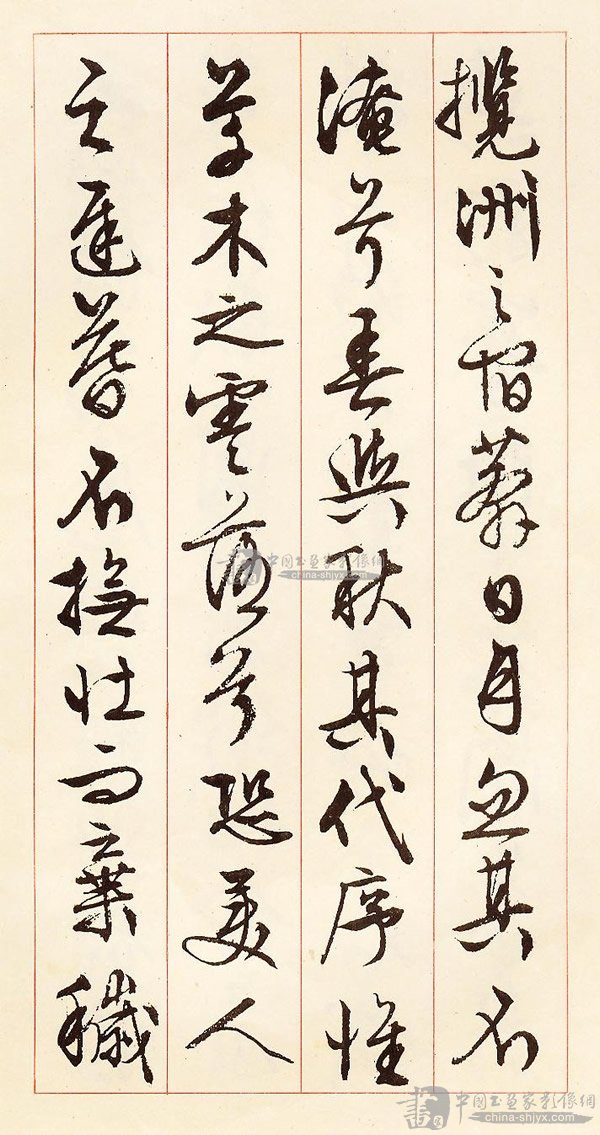 攬洲之宿莽日月忽其不
淹兮春與秋其代序惟
草木之零落兮恐美人
之遲暮不撫壯而棄穢
中國书画家影像網
china-shjyx.com
中國书画家影像網
china-shjyx.com